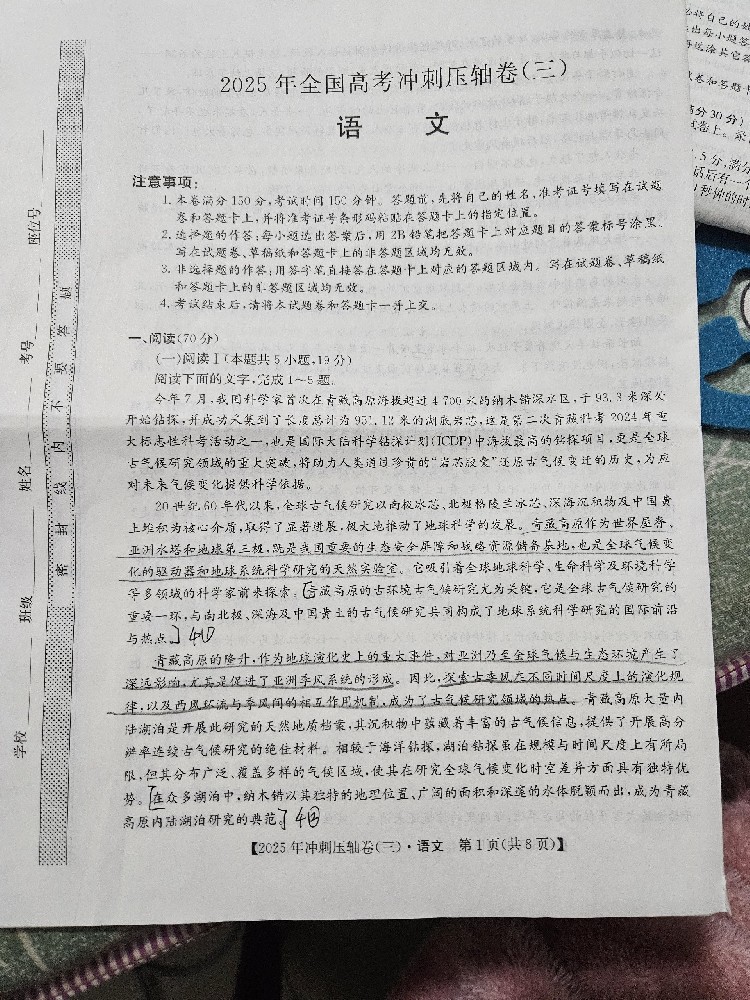 2025年全国高考冲刺压轴卷(三)
语 文
注意事项:
1.本卷满分150分,考试时间150分钟。答题前,先将自己的姓名、准考证号填写在试题
卷和答题卡上,并将准考证号条形码粘贴在答题卡上的指定位置。
2.选择题的作答:每小题选出答案后,用2B铅笔把答题卡上对应题目的答案标号涂黑。
写在试题卷、草稿纸和答题卡上的非答题区域均无效。
3.非选择题的作答:用签字笔直接答在答题卡上对应的答题区域内。写在试题卷、草稿纸
和答题卡上的非答题区域均无效。
4.考试结束后,请将本试题卷和答题卡一并上交。
一、阅读(70分)
(一)阅读Ⅰ(本题共5小题,19分)
阅读下面的文字,完成1~5题。
今年7月,我国科学家首次在青藏高原海拔超过4 700米的纳木错深水区,于93.3米深处
开始钻探,并成功采集到了长度总计为95.12米的湖底岩芯,这是第二次青藏科考2024年重
大标志性科考活动之一,也是国际大陆科学钻探计划(ICDP)中海拔最高的钻探项目,更是全球
古气候研究领域的重大突破,将助力人类通过珍贵的“岩芯胶卷”还原古气候变迁的历史,为应
对未来气候变化提供科学依据。
20世纪60年代以来,全球古气候研究以南极冰芯、北极格陵兰冰芯、深海沉积物及中国黄
土堆积为核心介质,取得了显著进展,极大地推动了地球科学的发展。青藏高原作为世界屋脊、
亚洲水塔和地球第三极,既是我国重要的生态安全屏障和战略资源储备基地,也是全球气候变
化的驱动器和地球系统科学研究的天然实验室。它吸引着全球地球科学、生命科学及环境科学
等多领域的科学家前来探索。青藏高原的古环境古气候研究尤为关键,它是全球古气候研究的
重要一环,与南北极、深海及中国黄土的古气候研究共同构成了地球系统科学研究的国际前沿
与热点。] 4D
青藏高原的隆升,作为地球演化史上的重大事件,对亚洲乃至全球气候与生态环境产生了
深远影响,尤其是促进了亚洲季风系统的形成。因此,探索古季风在不同时间尺度上的演化规
律,以及西风环流与季风间的相互作用机制,成为了古气候研究领域的热点。青藏高原大量内
陆湖泊是开展此研究的天然地质档案,其沉积物中蕴藏着丰富的古气候信息,提供了开展高分
辨率连续古气候研究的绝佳材料。相较于海洋钻探,湖泊钻探虽在规模与时间尺度上有所局
限,但其分布广泛、覆盖多样的气候区域,使其在研究全球气候变化时空差异方面具有独特优
势。[在众多湖泊中,纳木错以其独特的地理位置、广阔的面积和深邃的水体脱颖而出,成为青藏
高原内陆湖泊研究的典范。] 4B
【2025年冲刺压轴卷(三)·语文 第1页(共8页)】
学校 班级 姓名 考号 座位号
密 封 线 内 不 要 答 题